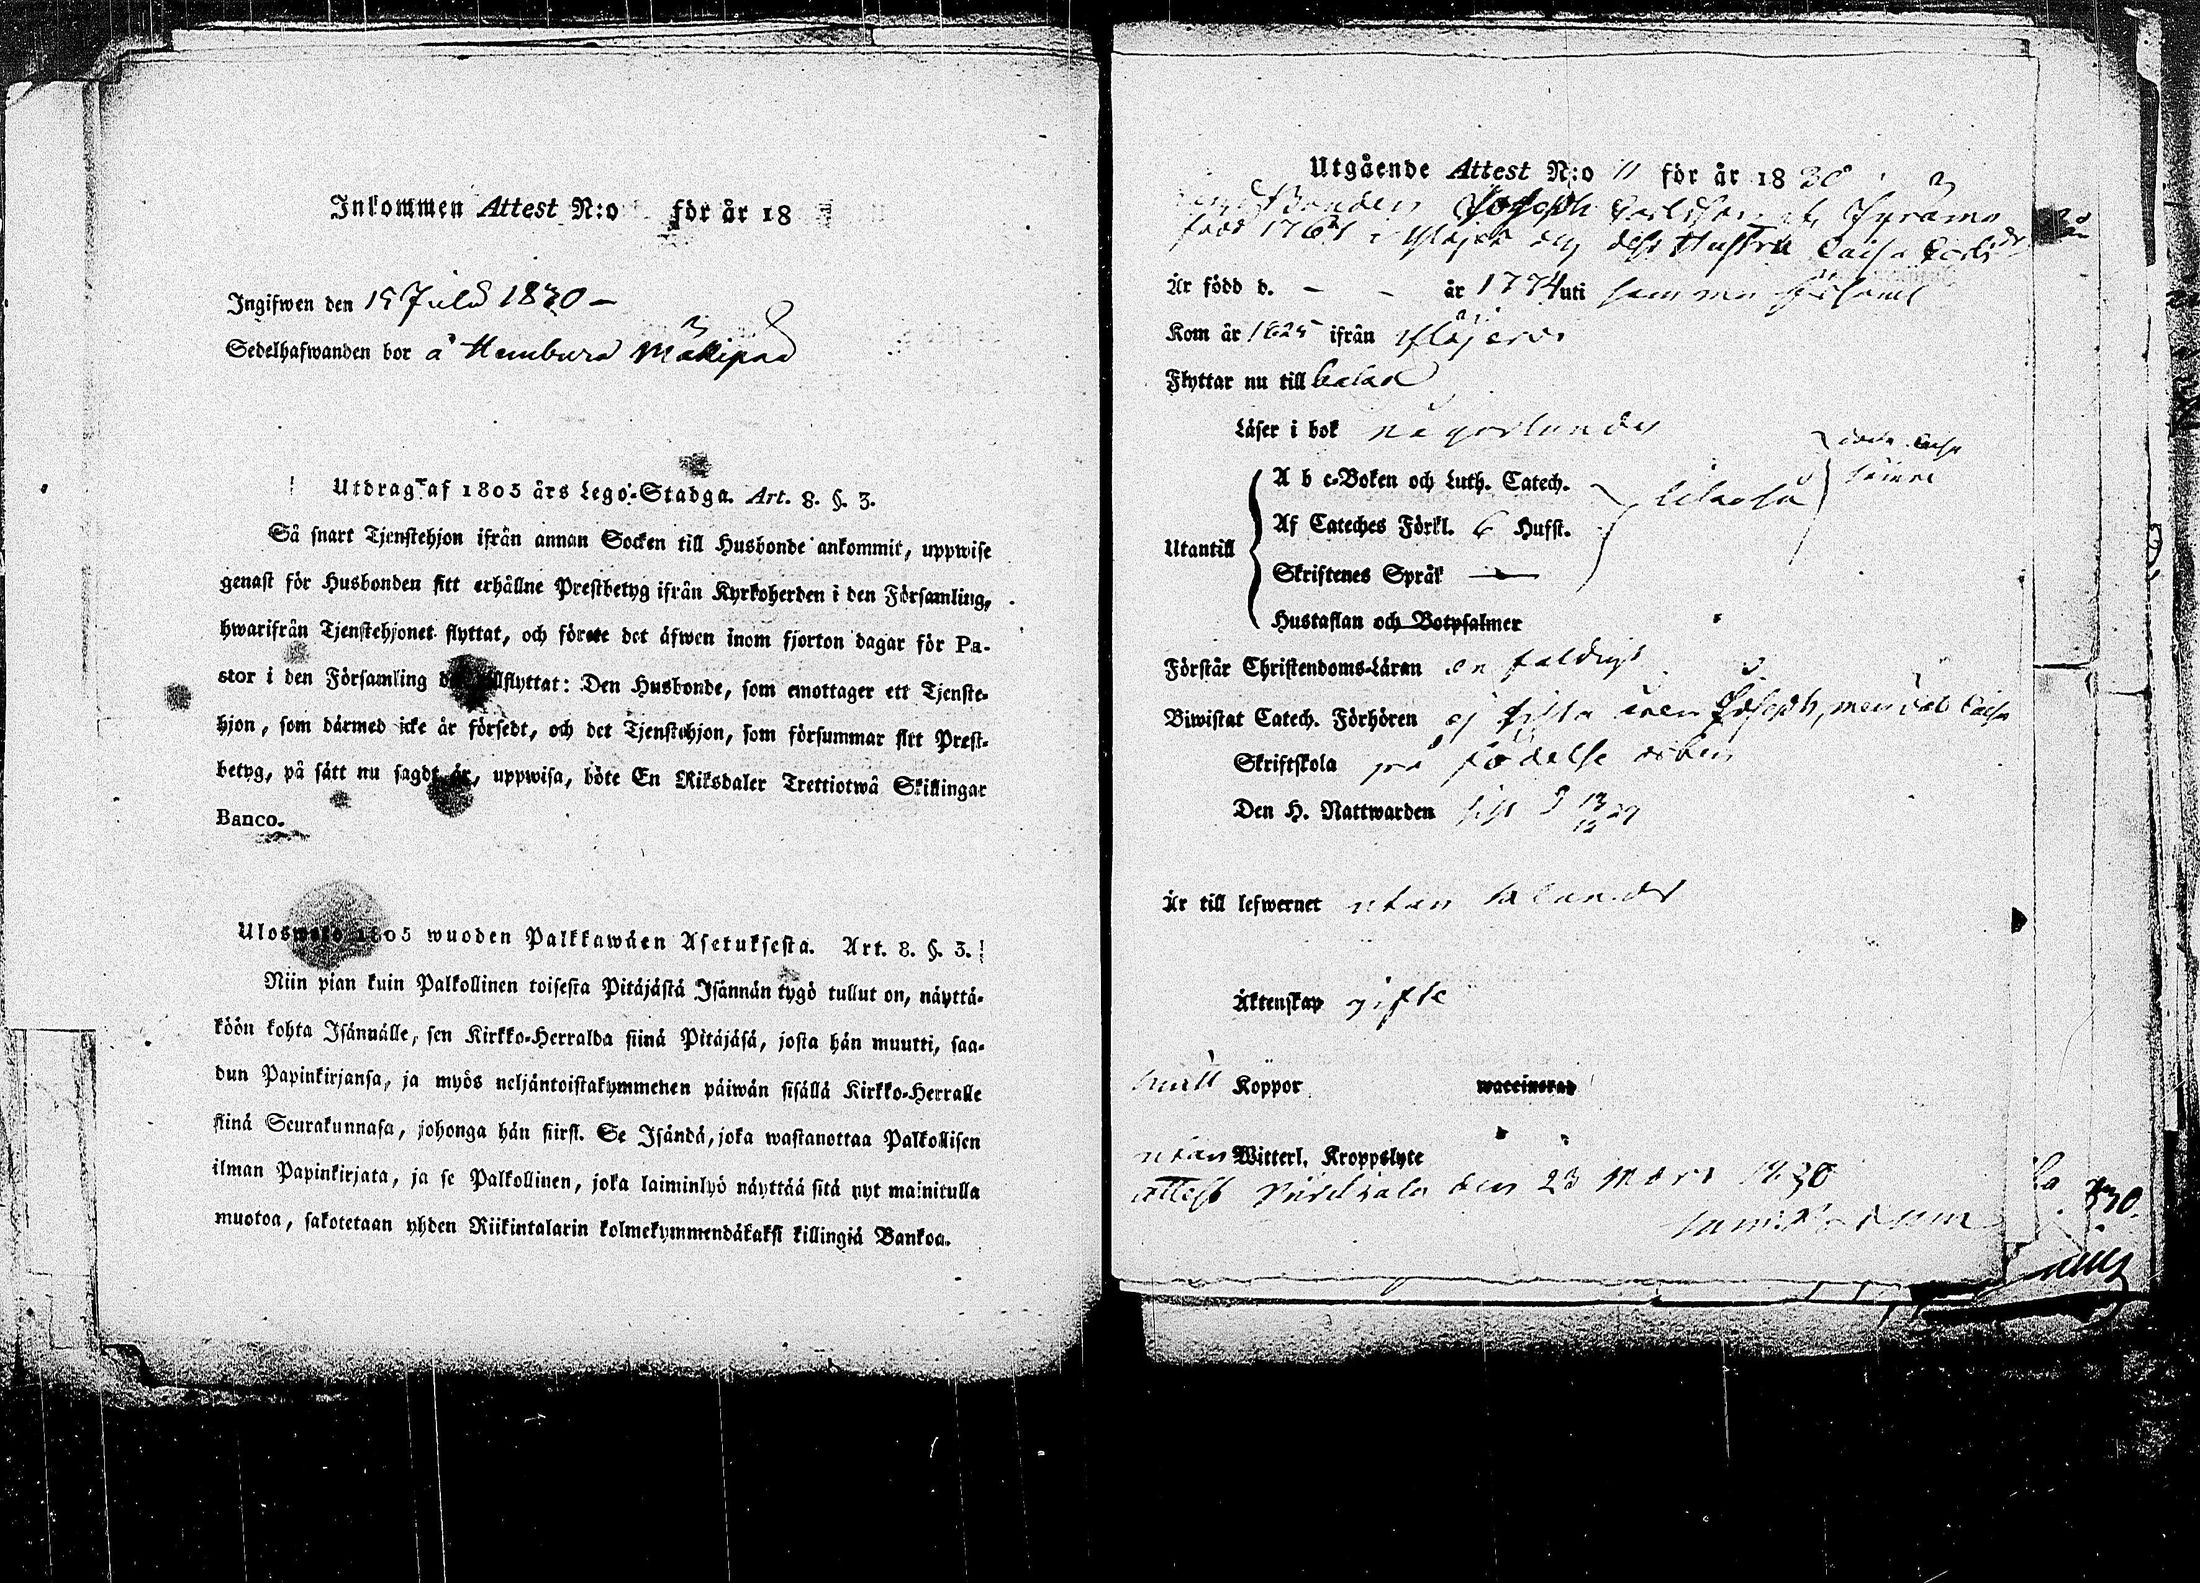 Inkommen Attest N:o för år 18
Ingifwen den 15 Julii 1830 –
Sedelhafwanden bor å Hembura Mäkipää
Utdrag af 1805 års Lego-Stadga. Art. 8. §. 3.
Så snart Tjenstehjon ifrån annan Socken till Husbonde ankommit, uppwise
genast för Husbonden sitt erhållne Prestbetyg ifrån Kyrkoherden i den Församling,
hwarifrån Tjenstehjonet flyttat, och förete det äfwen inom fjorton dagar för Pa-
stor i den Församling dit tillflyttat: Den Husbonde, som emottager ett Tjenste-
hjon, som därmed icke är försedt, och det Tjenstehjon, som försummar sitt Prest-
betyg, på sätt nu sagdt är, uppwisa, böte En Riksdaler Trettiotwå Skillingar
Banco.
Ulosweto 1805 wuoden Palkkawäen Asetuksesta. Art. 8. §. 3.
Niin pian kuin Palkollinen toisesta Pitäjästä Isännän tygö tullut on, näyttä-
köön kohta Isännälle, sen Kirkko-Herralda siinä Pitäjäsä, josta hän muutti, saa-
dun Papinkirjansa, ja myös neljäntoistakymmenen päiwän sisällä Kirkko-Herralle
siinä Seurakunnasa, johonga hän siirsi. Se Isändä, joka wastanottaa Palkollisen
ilman Papinkirjata, ja se Palkollinen, joka laiminlyö näyttää sitä nyt mainitulla
muotoa, sakotetaan yhden Riikintalarin kolmekymmendäkaksi killingiä Bankoa.
Utgående Attest N:o 11 för år 1830
Bonden Joseph Carlsson
född i och dess Hustru Caisa
Är född d. – – år 1774 uti samma
Kom år 1825 ifrån
Flyttar nu till
Läser i bok någorlunda
Utantill
A b c-Boken och Luth. Catech.
likaså
Af Cateches Förkl. 6 Hufst.
Skriftenes Språk —
Hustaflan och Botpsalmer
Förstår Christendoms-Läran enfaldigt
Biwistat Catech. Förhören ej sista åren Joseph, men väl Caisa
Skriftskola på födelse orten
Den H. Nattwarden sist d 13/12 29
Är till lefwernet utan
Äktenskap gifte
haft Koppor waccinerad
utan Witterl. Kroppslyte
Attest den 23 Mars 1830